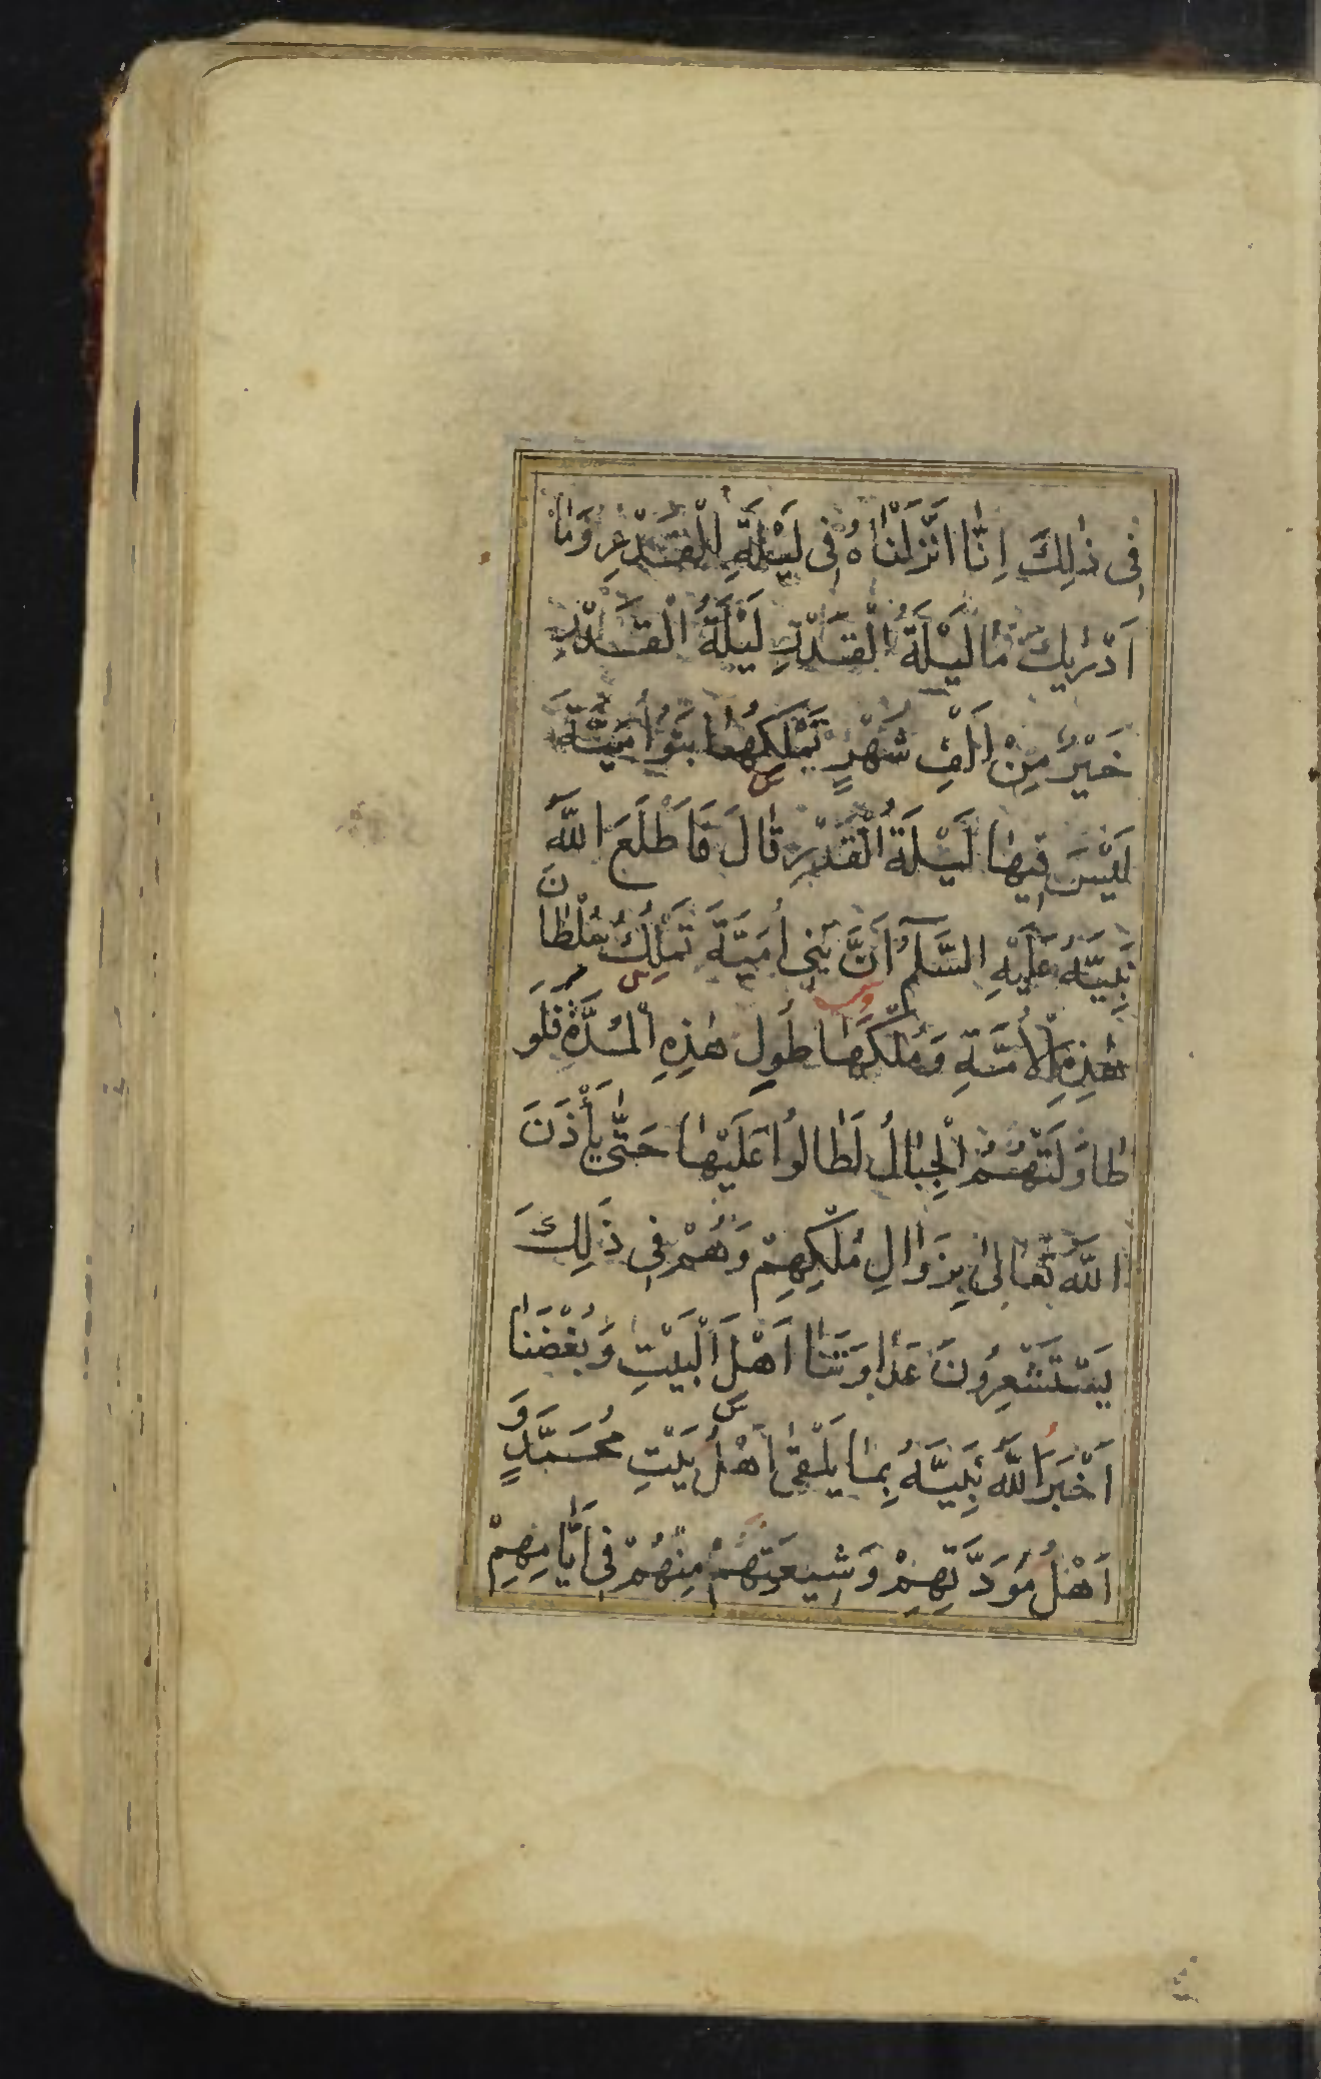 فِى ذٰلِكَ اِنّٰا اَنْزَلْنٰاهُ فِى لَيْلَةِ الْقَدْرِ وَمٰا
اَدْرٰيكَ مٰا لَيْلَةُ الْقَدْرِ لَيْلَةُ الْقَدْرِ
خَيْرٌ مِنْ اَلْفِ شَهْرٍ تَمْلِكُهٰا بَنُو اُمَيَّةَ
لَيْسَ فِيهٰا لَيْلَةُ الْقَدْرِ قٰالَ فَاَطْلَعَ اللّٰهُ
نَبِيَّهُ عَلَيْهِ السَّلٰمُ اَنَّ بَنِى اُمَيَّةَ تَمْلِكُ سُلْطٰانَ
هٰذِهِ الْاُمَّةِ وَمُلْكَهٰا طُولِ هٰذِهِ الْمُدَّةِ فَلَوْ
طٰاوَلَتْهُمُ الْجِبٰالُ لَطٰالُوا عَلَيْهٰا حَتّٰى يَأْذَنَ
اللّٰهُ تَعٰالىٰ بِزَوٰالِ مُلْكِهِمْ وَهُمْ فِى ذٰلِكَ
يَسْتَشْعِرُونَ عَدٰاوَتَنٰا اَهْلَ الْبَيْتِ وَبُغْضَنٰا
اَخْبَرَ اللّٰهُ نَبِيَّهُ بِمٰا يَلْقىٰ اَهْلُ بَيْتِ مُحَمَّدٍ وَ
اَهْلُ مَوَدَّتِهِمْ وَشِيعَتِهِمْ مِنْهُمْ فِى اَيّٰامِهِمْ